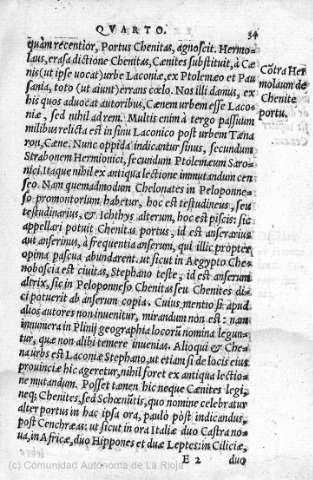 QVARTO. 34
quàm recentior, Portus Chenitas, agnoscit. Hermo-
laus, erasa dictione Chenitas, Cænites substituit, à Cæ
nis (ut ipse uocat) urbe Laconiæ, ex Ptolemæo et Pau
sania, toto (ut aiunt) errans cœlo. Nos illi damus, ex
his quos aduocat autoribus, Cænem urbem esse Laco-
niæ, sed nihil ad rem. Multis enim à tergo passuum
milibus relicta est in sinu Laconico post urbem Tæna
ron, Cæne. Nunc oppida indicantur sinus, secundum
Strabonem Hermionici, secundum Ptolemæum Saro-
nici. Itaque nihil ex antiqua lectione immutandum cen
seo. Nam quemadmodum Chelonates in Peloponne-
so promontorium habetur, hoc est testudineus, seu
testudinarius, & Ichthys alterum, hoc est piscis: sic
appellari potuit Chenitas portus, id est anserarius
aut anserinus, à frequentia anserum, qui illic propter
opima pascua abundarent. ut sicut in Aegypto Che-
noboscia est ciuitas, Stephano teste, id est anserum
altrix, sic in Peloponneso Chenitas seu Chenites di-
ci potuerit ab anserum copia. Cuius mentio si apud
duos autores non inuenitur, mirandum non est: nam
innumera in Plinij geographia locorū nomina legun-
tur, quæ non alibi temere inuenias. Alioqui & Che-
na urbs est Laconiæ Stephano, ut etiam si de locis eius
prouinciæ hic ageretur, nihil foret ex antiqua lectio-
ne mutandum. Posset tamen hic neque Cænites legi,
neq; Chenites, sed Schœnitis, quo nomine celebratur
alter portus in hac ipsa ora, paulò pòst indicandus,
post Cenchreas: ut sicut in ora Italiæ duo Castra no-
ua, in Africæ, duo Hippones et duæ Leptes: in Ciliciæ,
E 2 duo
Cōtra Her
molaum de
Chenite
portu.
(c) Comunidad Autónoma de La Rioja